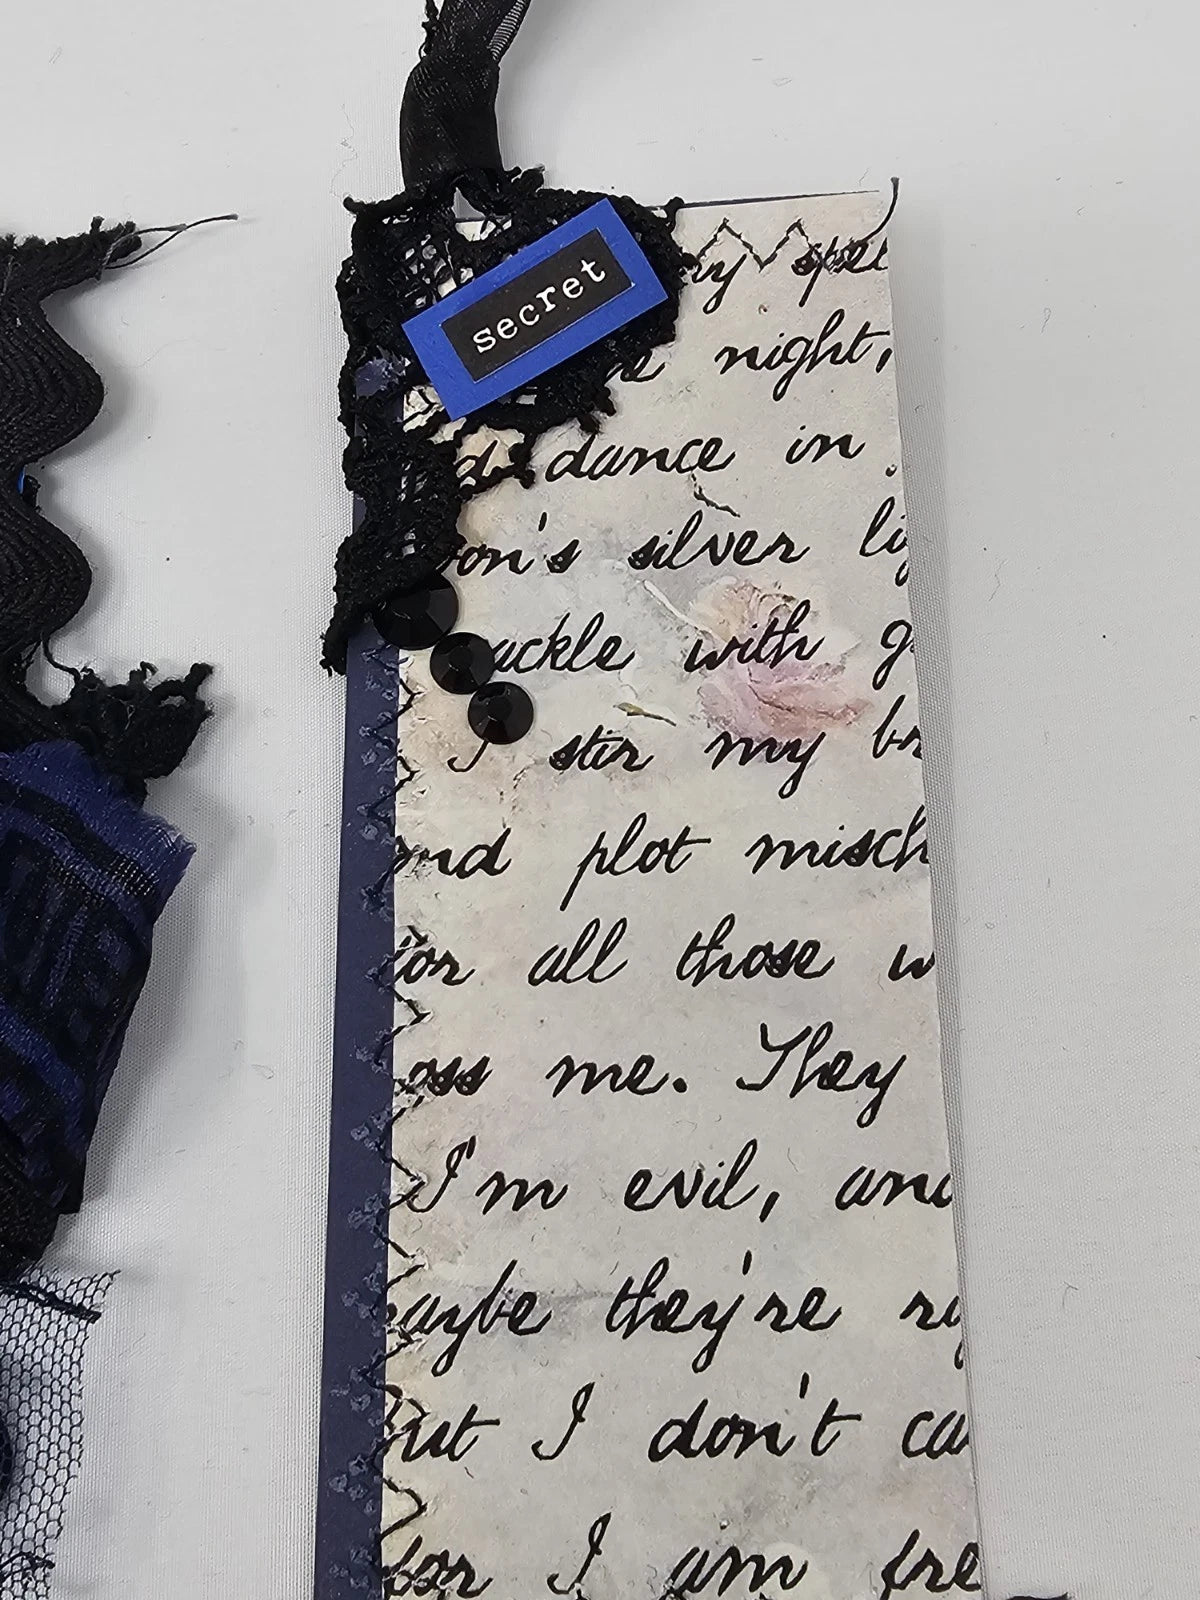 secret
my spel
night,
dance in
on's silver lig
ackle with g
I stir my br
and plot misch
for all those w
oss me. They
I'm evil, and
aybe they're rig
but I don't ca
for I am fre